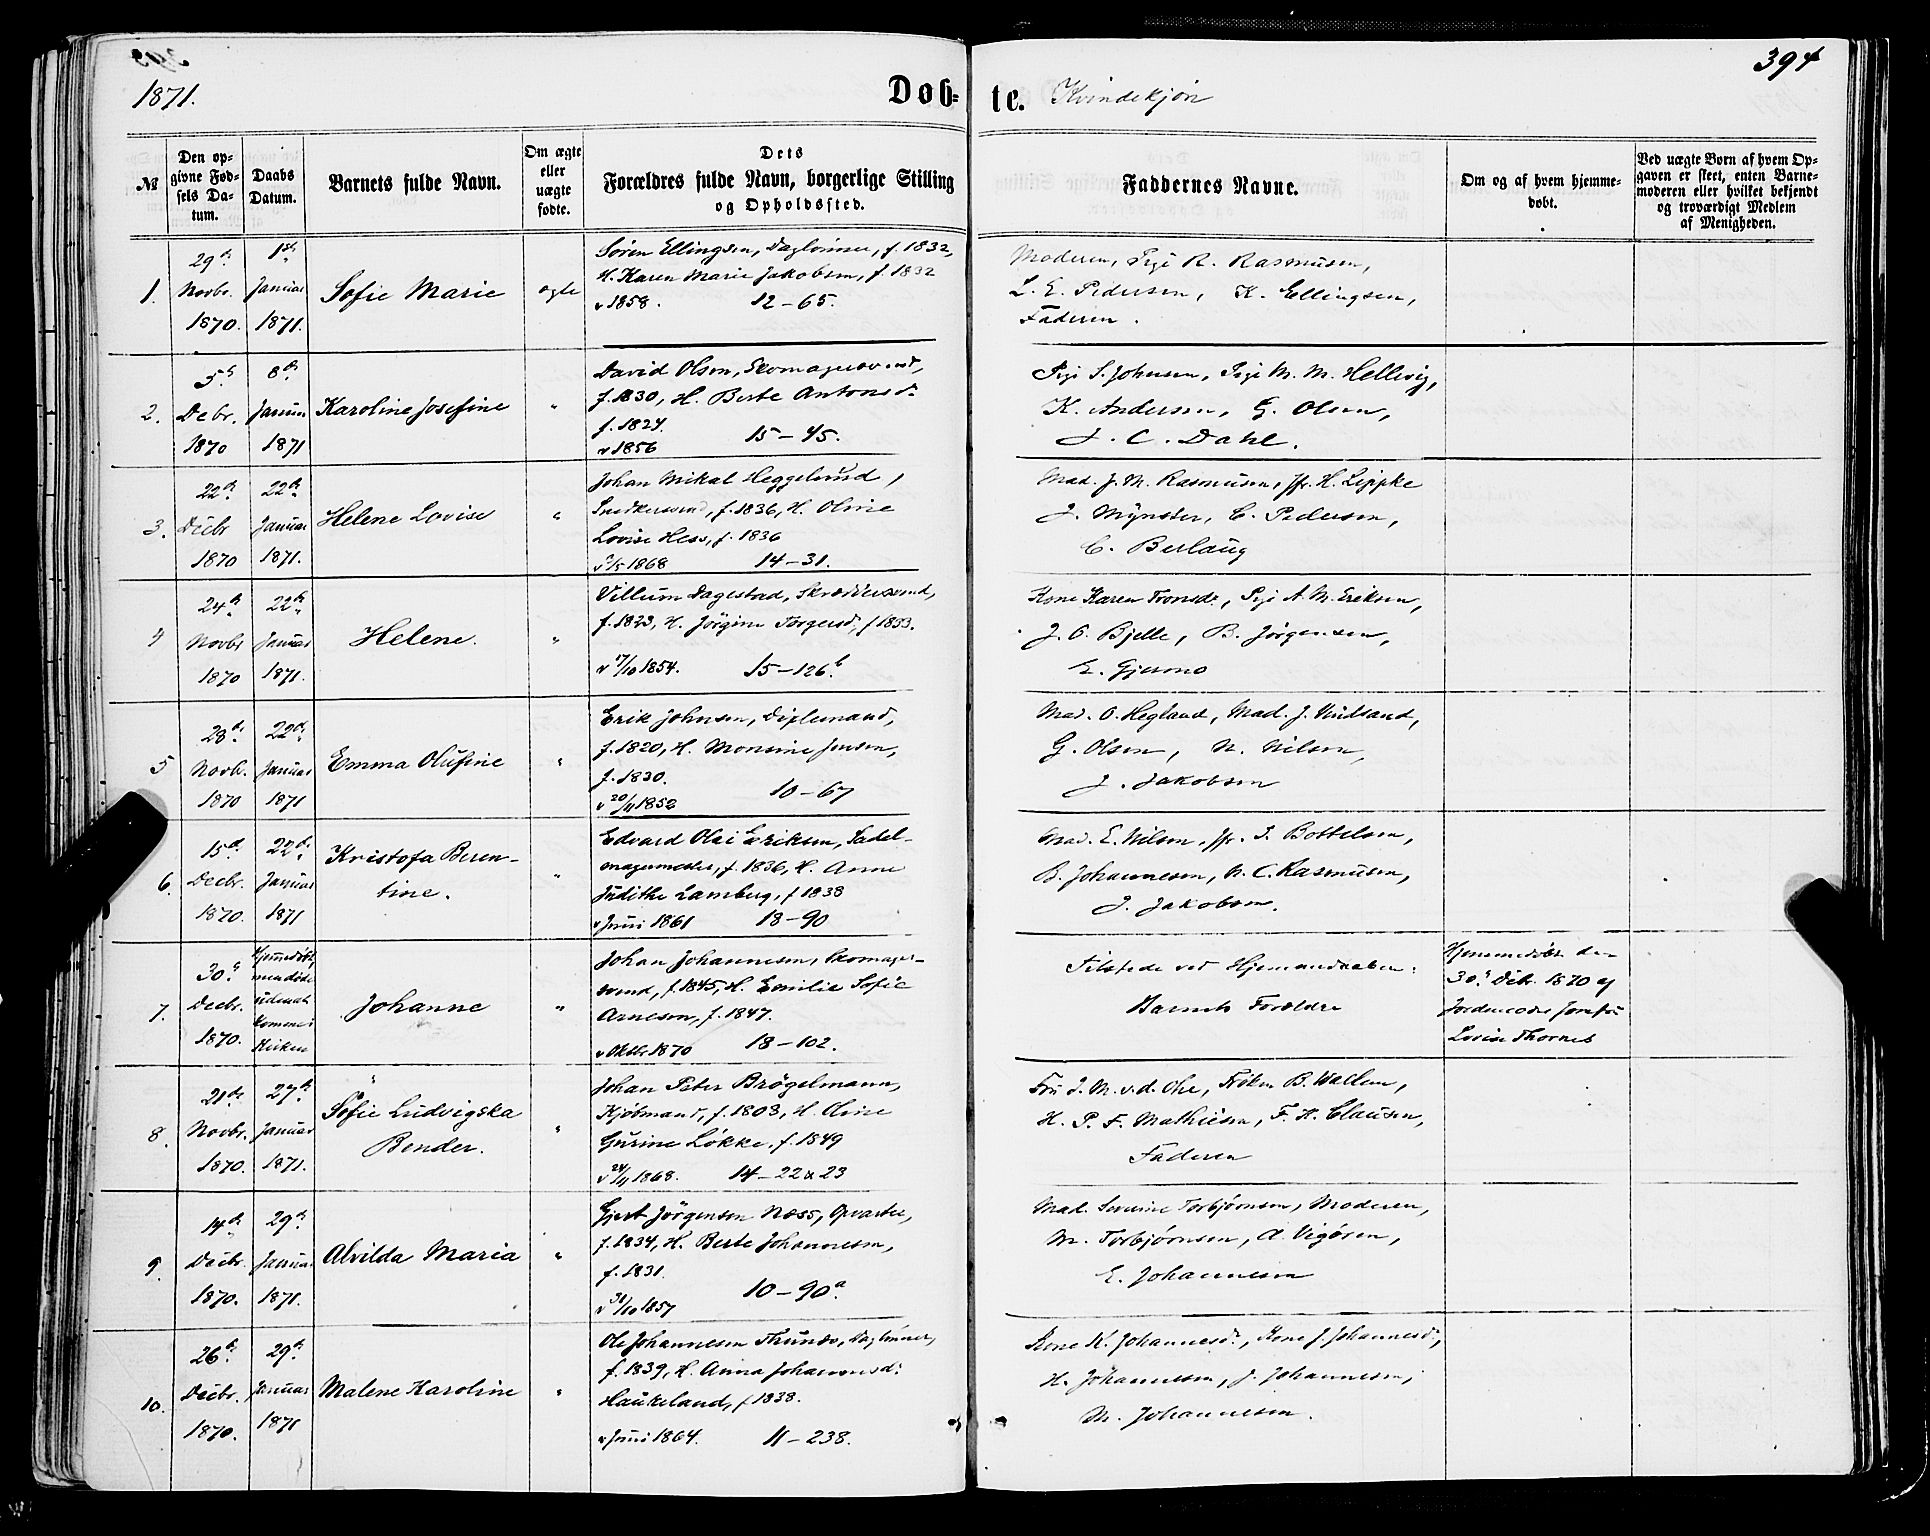 394
1871.
Døb-
te. Kvindekjøn
№
Den op-
givne Fød-
sels Da-
tum.
Daabs
Datum.
Barnets fulde Navn.
Om ægte
eller
uægte
fødte.
Dets
Forældres fulde Navn, borgerlige Stilling
og Opholdssted.
Faddernes Navne.
Om og af hvem hjemme-
døbt.
Ved uægte Børn af hvem Op-
gaven er skeet, enten Barne-
moderen eller hvilket bekjendt
og troværdigt Medlem
af Menigheden.
1.
29de
Novbr.
1870.
1ste
Januar
1871.
Sofie Marie
ægte
Søren Ellingsen, Dagleiner, f. 1832,
H. Karen Marie Jakobsen, f. 1832
v 1858. 12-65.
Moderen, Pige R. Rasmusen,
L. E. Pedersen, K. Ellingsen,
Faderen.
2.
5te
Debr.
1870
8de
Januar
1871
Karoline Josefine
"
David Olsen, Skomagersvend,
f. 1830, H. Berte Antonsd.
f. 1824.
v 1856 15-45.
Pige S. Johnsen, Pige M. M. Hellevig,
K. Andersen, G. Olsen,
J. C. Dahl.
3.
22de
Decbr
1870
22de
Januar
1871.
Helene Lovise
"
Johan Mikal Heggelund,
Snedkersvend, f. 1836, H. Oline
Lovise Hess, f. 1836
1868 14-31.
Mad. J. M. Rasmusen, Jfr. H. Lippke
J. Mynster, C. Pedersen,
C. Berlaug
4
24de
Novbr
1870
22de
Januar
1871.
Helene.
"
Villum Dagestad, Skræddersvend,
f. 1823, H. Jörgine Torgersd, f 1833.
v 17/10 1854. 15-126b
Kone Karen Tronsd., Pige A. M. Eriksen,
J. O. Bjelle, B. Jørgensen,
E. Gjermo
5
28de
Novbr.
1870
22de
Januar
1871
Emma Olufine
"
Erik Johnsen, Diplemand,
f. 1820, H. Monsine Jensen,
f. 1830.
v 20/11 1852 10-67
Mad. O. Hegland, Mad. J. Hudsand,
G. Olsen, N. Nilsen,
J. Jakobsen
6.
15de
Decbr.
1870.
22de
Januar
1871
Kristofa Beren-
tine.
"
Edvard Olai Eriksen, Sadel-
magermester, f. 1836, H. Anne
Judithe Lamberg, f 1838
v Juni 1861 18-90
Mad. E. Nilsen, Jfr. S. Bottelsen,
B. Johannesen, N. C. Rasmusen,
J. Jakobsen.
7.
30te
Decbr.
1870.
Hjemmedøbt,
men døde
uden at
komme i
Kirken
Johanne
"
Johan Johannesen, Skomager-
svend, f. 1845, H. Emilie Sofie
Arnesen, f. 1847.
v Oktbr 1870 18-102.
Tilstede ved Hjemmedaaben:
Barnets Forældre
Hjemmedøbt den
30te Debr. 1870 af
Jordemoder Josefa
Lovise Thornes
8.
21de
Novbr.
1870.
27de
Januar
1871.
Sofie Ludvigska
Bender.
"
Johan Peter Brögelmann,
Kjøbmand, f. 1808, H. Oline
Gurine Løkke, f. 1849
v 24/11 1868. 14-22 & 23
Fru J. M. v. d. Ohe, Frøken B. Wallem,
H. P. F. Mathiesen, F. H. Clausen,
Faderen
9.
14de
Decbr.
1870.
29de
Januar
1871.
Alvilda Maria
"
Gjert Jörgensen Næss, Opvarter,
f. 1834, H. Berte Johannesen,
f. 1831.
v 31/10 1857 10-90a.
Mad. Severine Torbjørnsen, Moderen,
M. Torbjørnsen, A. Vigøren,
E. Johannesen
10.
26de
Decbr.
1870.
29de
Januar
1871
Malene Karoline
"
Ole Johannesen Thunæs, Dagleiner,
f. 1839, H. Anna Johannesd.
Haukeland, f 1838.
v Juni 1864. 11-238.
Kone K. Johannesd., Kone J. Johannesd.,
H. Johannesen, J. Johannesen,
M. Johannesen.